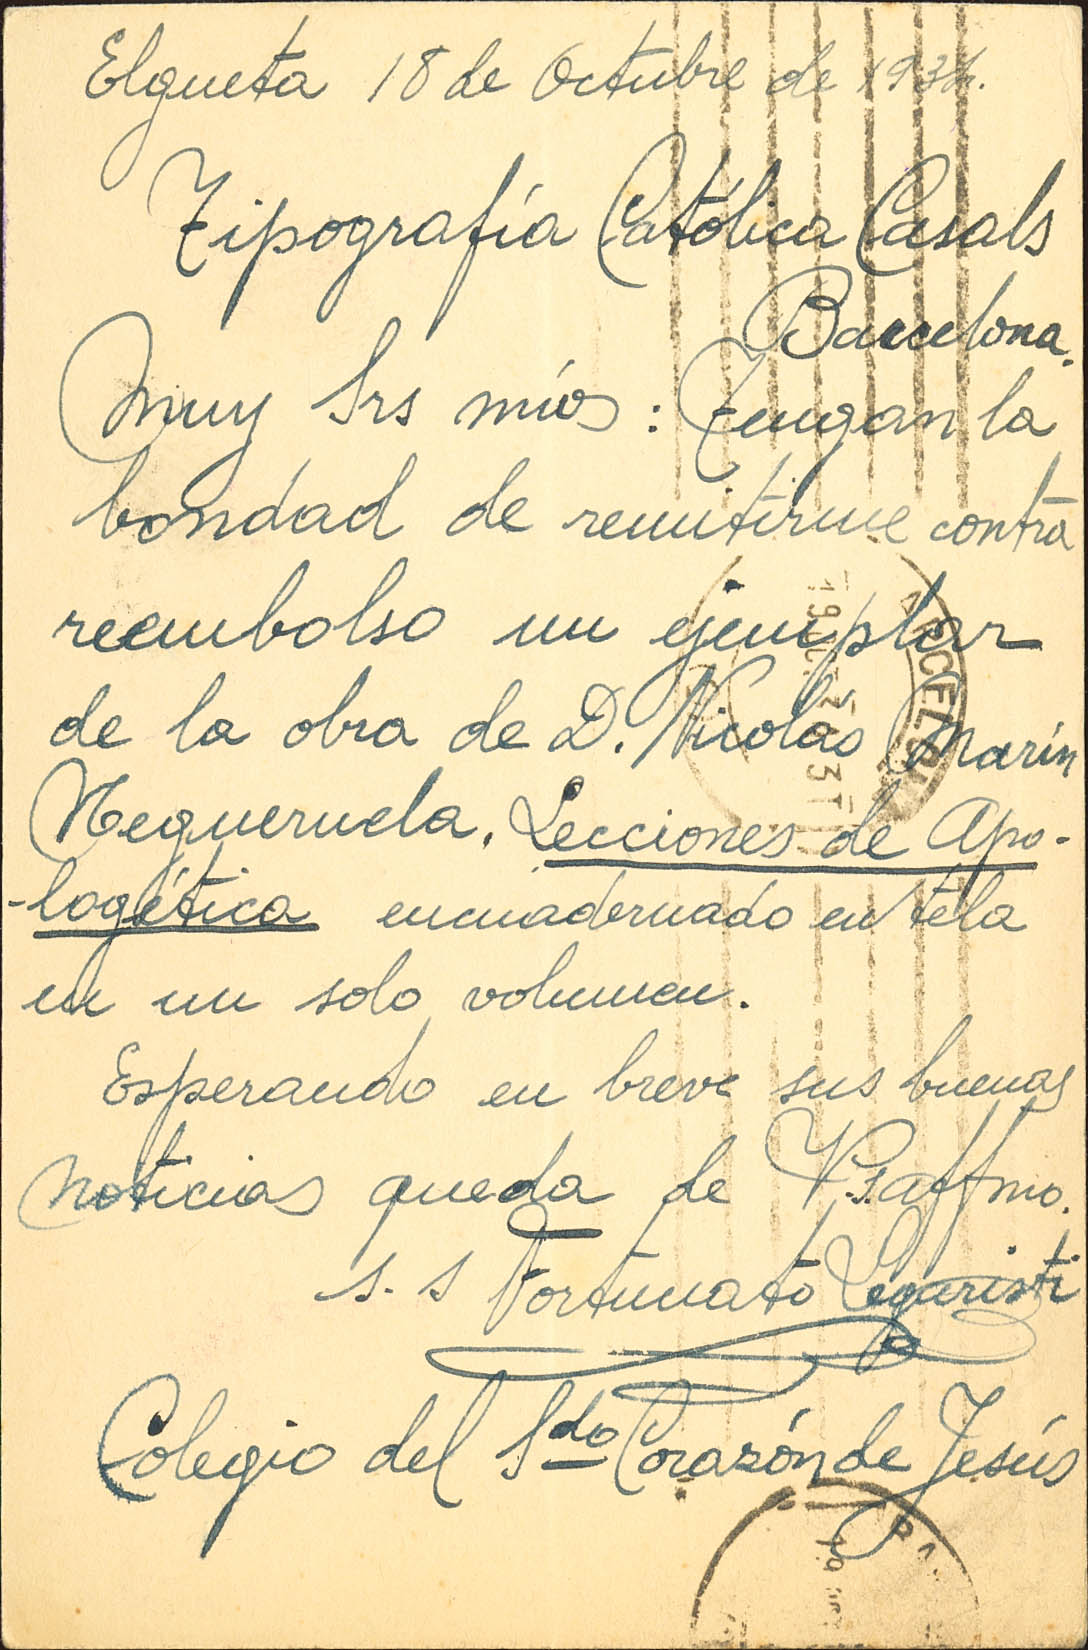 Elgueta 18 de Octubre de 1934.
Tipografía Católica Casals
Barcelona.
Muy Srs míos: Tengan la
bondad de remitirme contra
reembolso un ejemplar
de la obra de D. Nicolás Marín
Negueruela, Lecciones de Apo-
-logética encuadernado en tela
en un solo volumen.
Esperando en breve sus buenas
noticias queda de Vs. affmo.
s. s Fortunato Legaristi
Colegio del Sdo Corazón de Jesús
BARCELONA